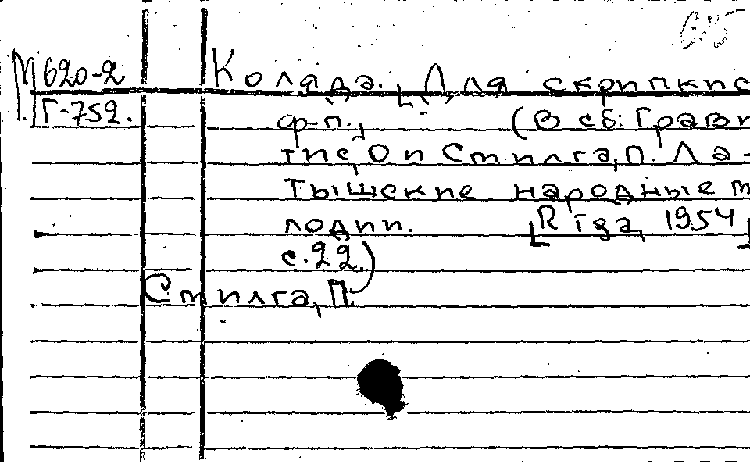 65
М620-2 Коляда. [Для скрипки с
Г-752. ф-п.] (В сб: Грави
тис, О и Стилга, П. Ла-
тышские народные м
лодии. [Rīga, 1954]
с.22)
Стилга, П.